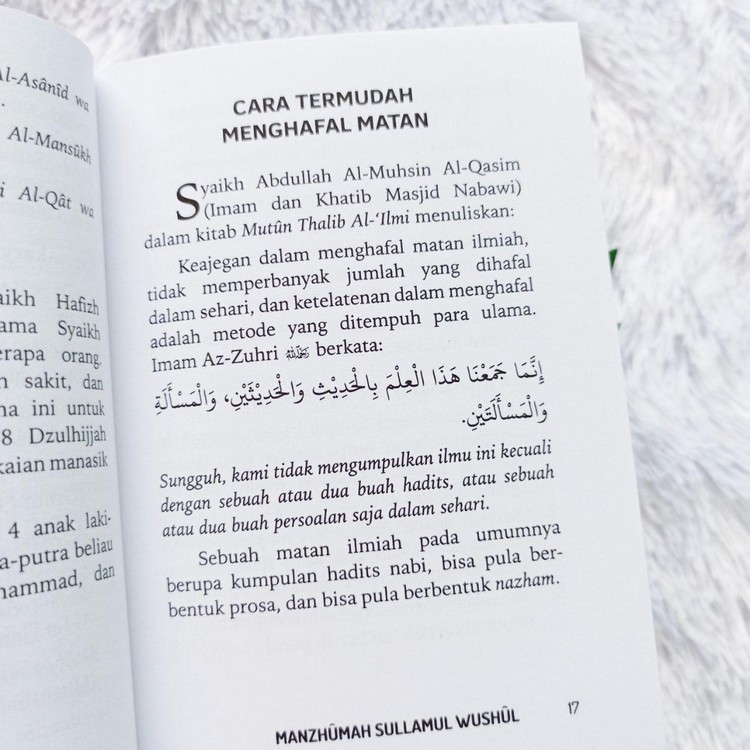 Al-Asânîd wa
Al-Mansûkh
Al-Qât wa
Hafizh
Syaikh
orang.
sakit, dan
ini untuk
8 Dzulhijjah
manasik
4 anak laki-
beliau
dan
CARA TERMUDAH
MENGHAFAL MATAN
Syaikh Abdullah Al-Muhsin Al-Qasim
(Imam dan Khatib Masjid Nabawi)
dalam kitab Mutûn Thalib Al-‘Ilmi menuliskan:
Keajegan dalam menghafal matan ilmiah,
tidak memperbanyak jumlah yang dihafal
dalam sehari, dan ketelatenan dalam menghafal
adalah metode yang ditempuh para ulama.
Imam Az-Zuhri berkata:
إِنَّمَا جَمَعْنَا هَذَا الْعِلْمَ بِالْحَدِيْثِ وَالْحَدِيْثَيْنِ، وَالْمَسْأَلَةِ
وَالْمَسْأَلَتَيْنِ.
Sungguh, kami tidak mengumpulkan ilmu ini kecuali
dengan sebuah atau dua buah hadits, atau sebuah
atau dua buah persoalan saja dalam sehari.
Sebuah matan ilmiah pada umumnya
berupa kumpulan hadits nabi, bisa pula ber-
bentuk prosa, dan bisa pula berbentuk nazham.
MANZHÛMAH SULLAMUL WUSHÛL 17